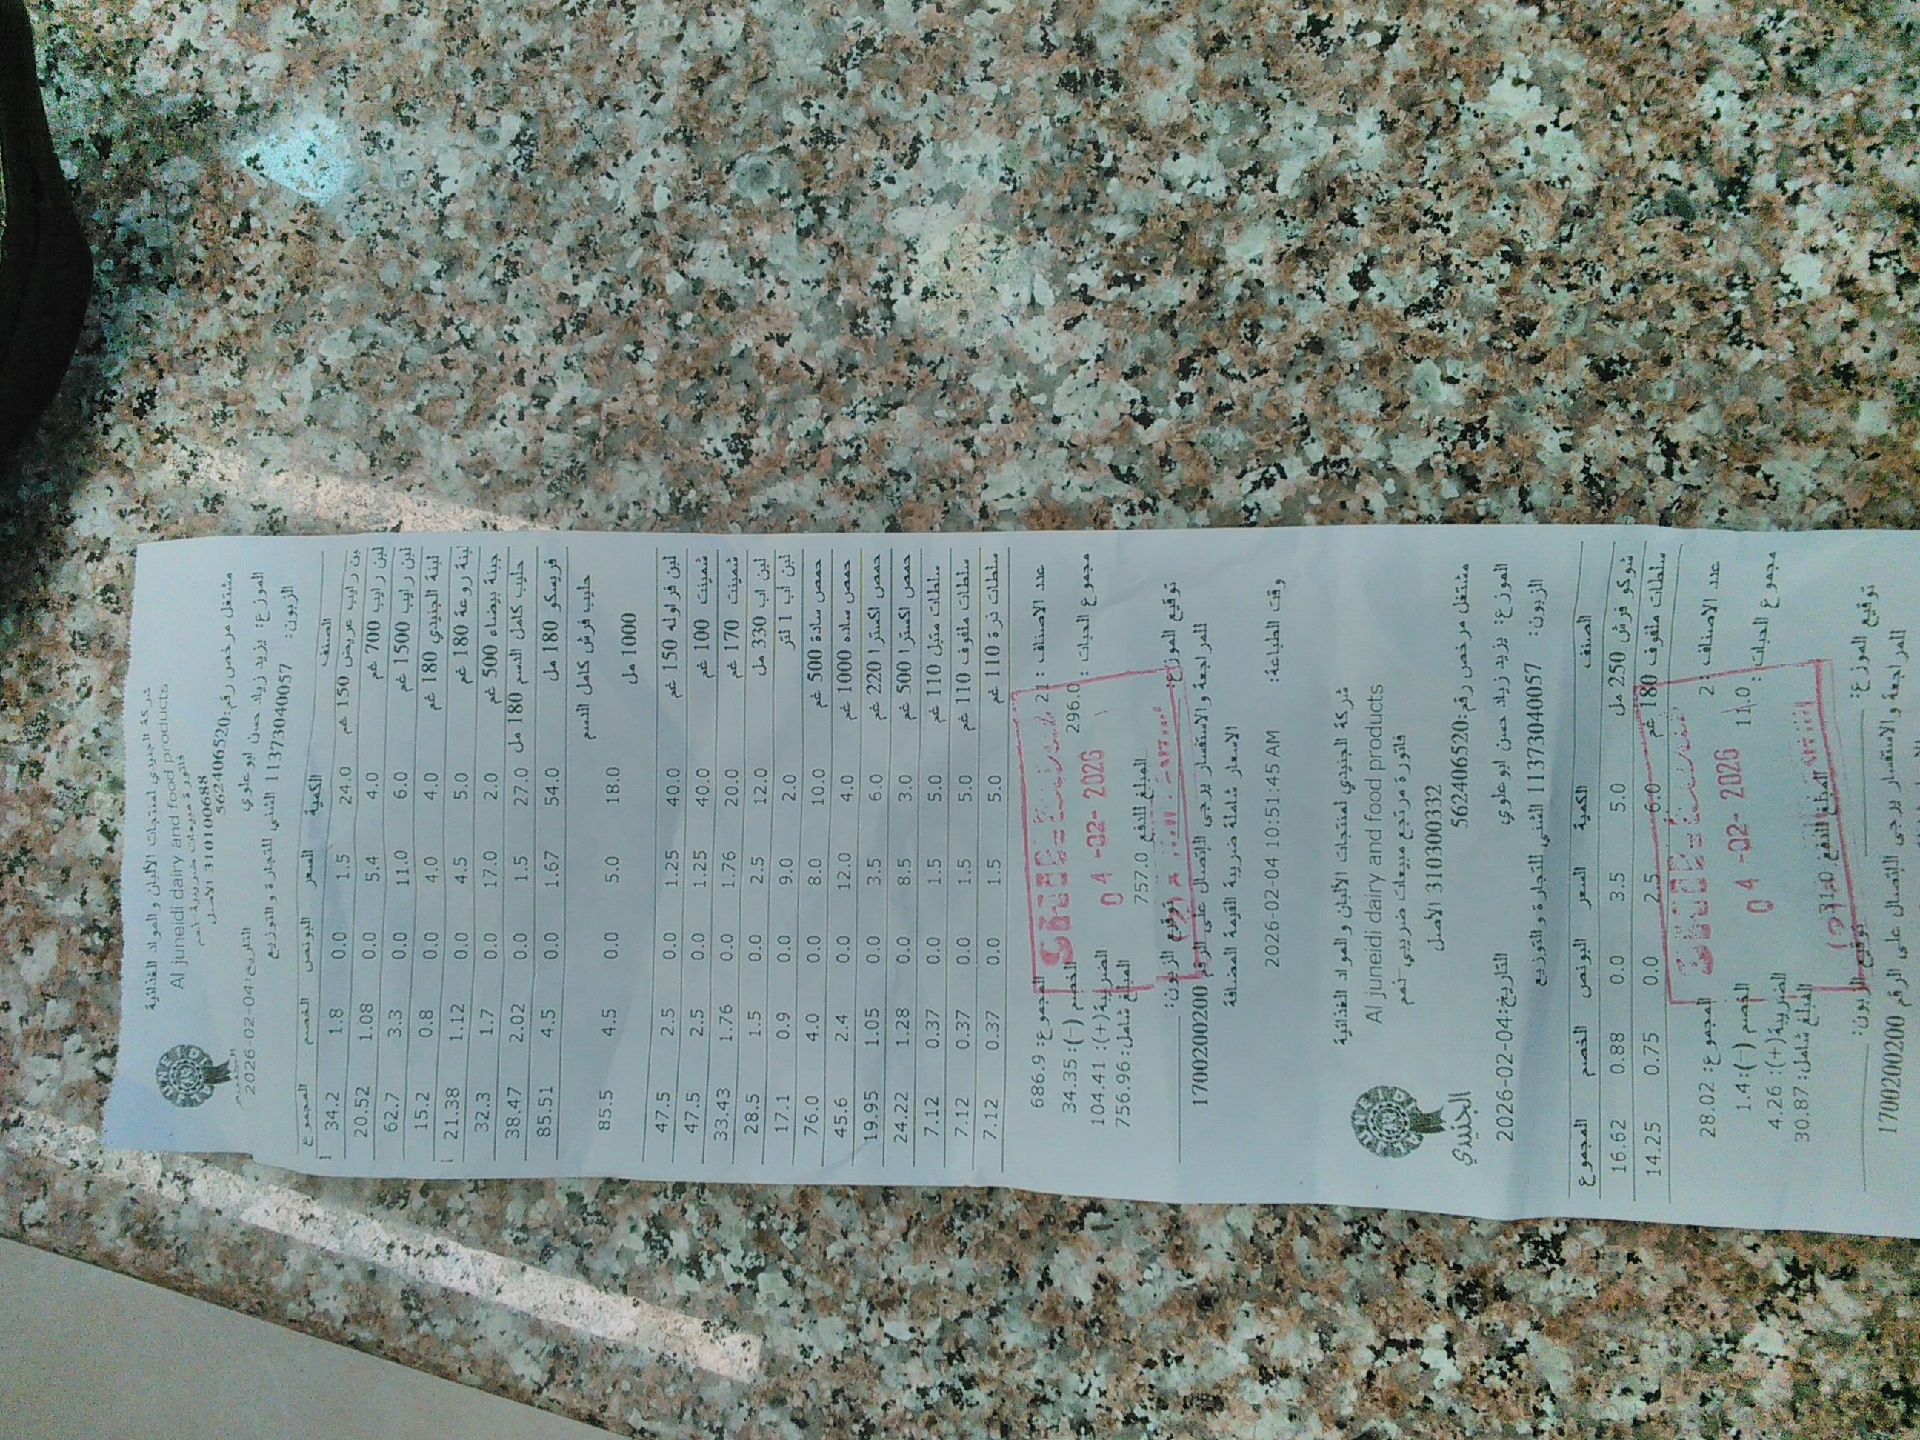 شركة الجنيدي لمنتجات الألبان والمواد الغذائية
Al juneidi dairy and food products
فاتورة مبيعات ضريبية نعم
310100688 الأصل
مشتغل مرخص رقم:562406520
التاريخ:2026-02-04 الموزع: يزيد زياد حسن ابو علوي
الزبون: 1137304005‎7 الشني للتجارة و التوزيع
الصنف الكمية السعر البونص الخصم المجموع
لبن رايب عريض 150 غم 24.0 1.5 0.0 1.8 34.2
لبن رايب 700 غم 4.0 5.4 0.0 1.08 20.52
لبن رايب 1500 غم 6.0 11.0 0.0 3.3 62.7
لبنة الجنيدي 180 غم 4.0 4.0 0.0 0.8 15.2
لبنة روعة 180 غم 5.0 4.5 0.0 1.12 21.38
جبنة بيضاء 500 غم 2.0 17.0 0.0 1.7 32.3
حليب كامل الدسم 180 مل 27.0 1.5 0.0 2.02 38.47
فريسكو 180 مل 54.0 1.67 0.0 4.5 85.51
حليب فرش كامل الدسم
1000 مل 18.0 5.0 0.0 4.5 85.5
لبن فراوله 150 غم 40.0 1.25 0.0 2.5 47.5
شمينت 100 غم 40.0 1.25 0.0 2.5 47.5
شمينت 170 غم 20.0 1.76 0.0 1.76 33.43
لبن اب 330 مل 12.0 2.5 0.0 1.5 28.5
لبن اب 1 لتر 2.0 9.0 0.0 0.9 17.1
حمص سادة 500 غم 10.0 8.0 0.0 4.0 76.0
حمص ساده 1000 غم 4.0 12.0 0.0 2.4 45.6
حمص اكسترا 220 غم 6.0 3.5 0.0 1.05 19.95
حمص اكسترا 500 غم 3.0 8.5 0.0 1.28 24.22
سلطات متبل 110 غم 5.0 1.5 0.0 0.37 7.12
سلطات ملفوف 110 غم 5.0 1.5 0.0 0.37 7.12
سلطات ذرة 110 غم 5.0 1.5 0.0 0.37 7.12
عدد الاصناف : 21 المجموع: 686.9
مجموع الحبات : 296.0 الخصم (-): 34.35
04 -02- 2026
الضريبة(+): 104.41
المبلغ للدفع 757.0 المبلغ شامل: 756.96
توقيع الموزع: توقيع الزبون:
للمراجعة والاستفسار يرجى الاتصال على الرقم 1700200200
الاسعار شاملة ضريبة القيمة المضافة
وقت الطباعة: 2026-02-04 10:51:45 AM
شركة الجنيدي لمنتجات الألبان والمواد الغذائية
Al juneidi dairy and food products
فاتورة مرتجع مبيعات ضريبي نعم
310300332 الأصل
الجنيدي
مشتغل مرخص رقم:562406520
التاريخ:2026-02-04 الموزع: يزيد زياد حسن ابو علوي
الزبون: 11373040057 الشني للتجارة و التوزيع
الصنف الكمية السعر البونص الخصم المجموع
شوكو فرش 250 مل 5.0 3.5 0.0 0.88 16.62
سلطات ملفوف 180 غم 6.0 2.5 0.0 0.75 14.25
عدد الاصناف : 2 المجموع: 28.02
مجموع الحبات : 11.0 الخصم (-): 1.4
04 -02- 2026
الضريبة(+): 4.26
المبلغ للدفع المبلغ شامل: 30.87
توقيع الموزع: توقيع الزبون:
للمراجعة والاستفسار يرجى الاتصال على الرقم 1700200200